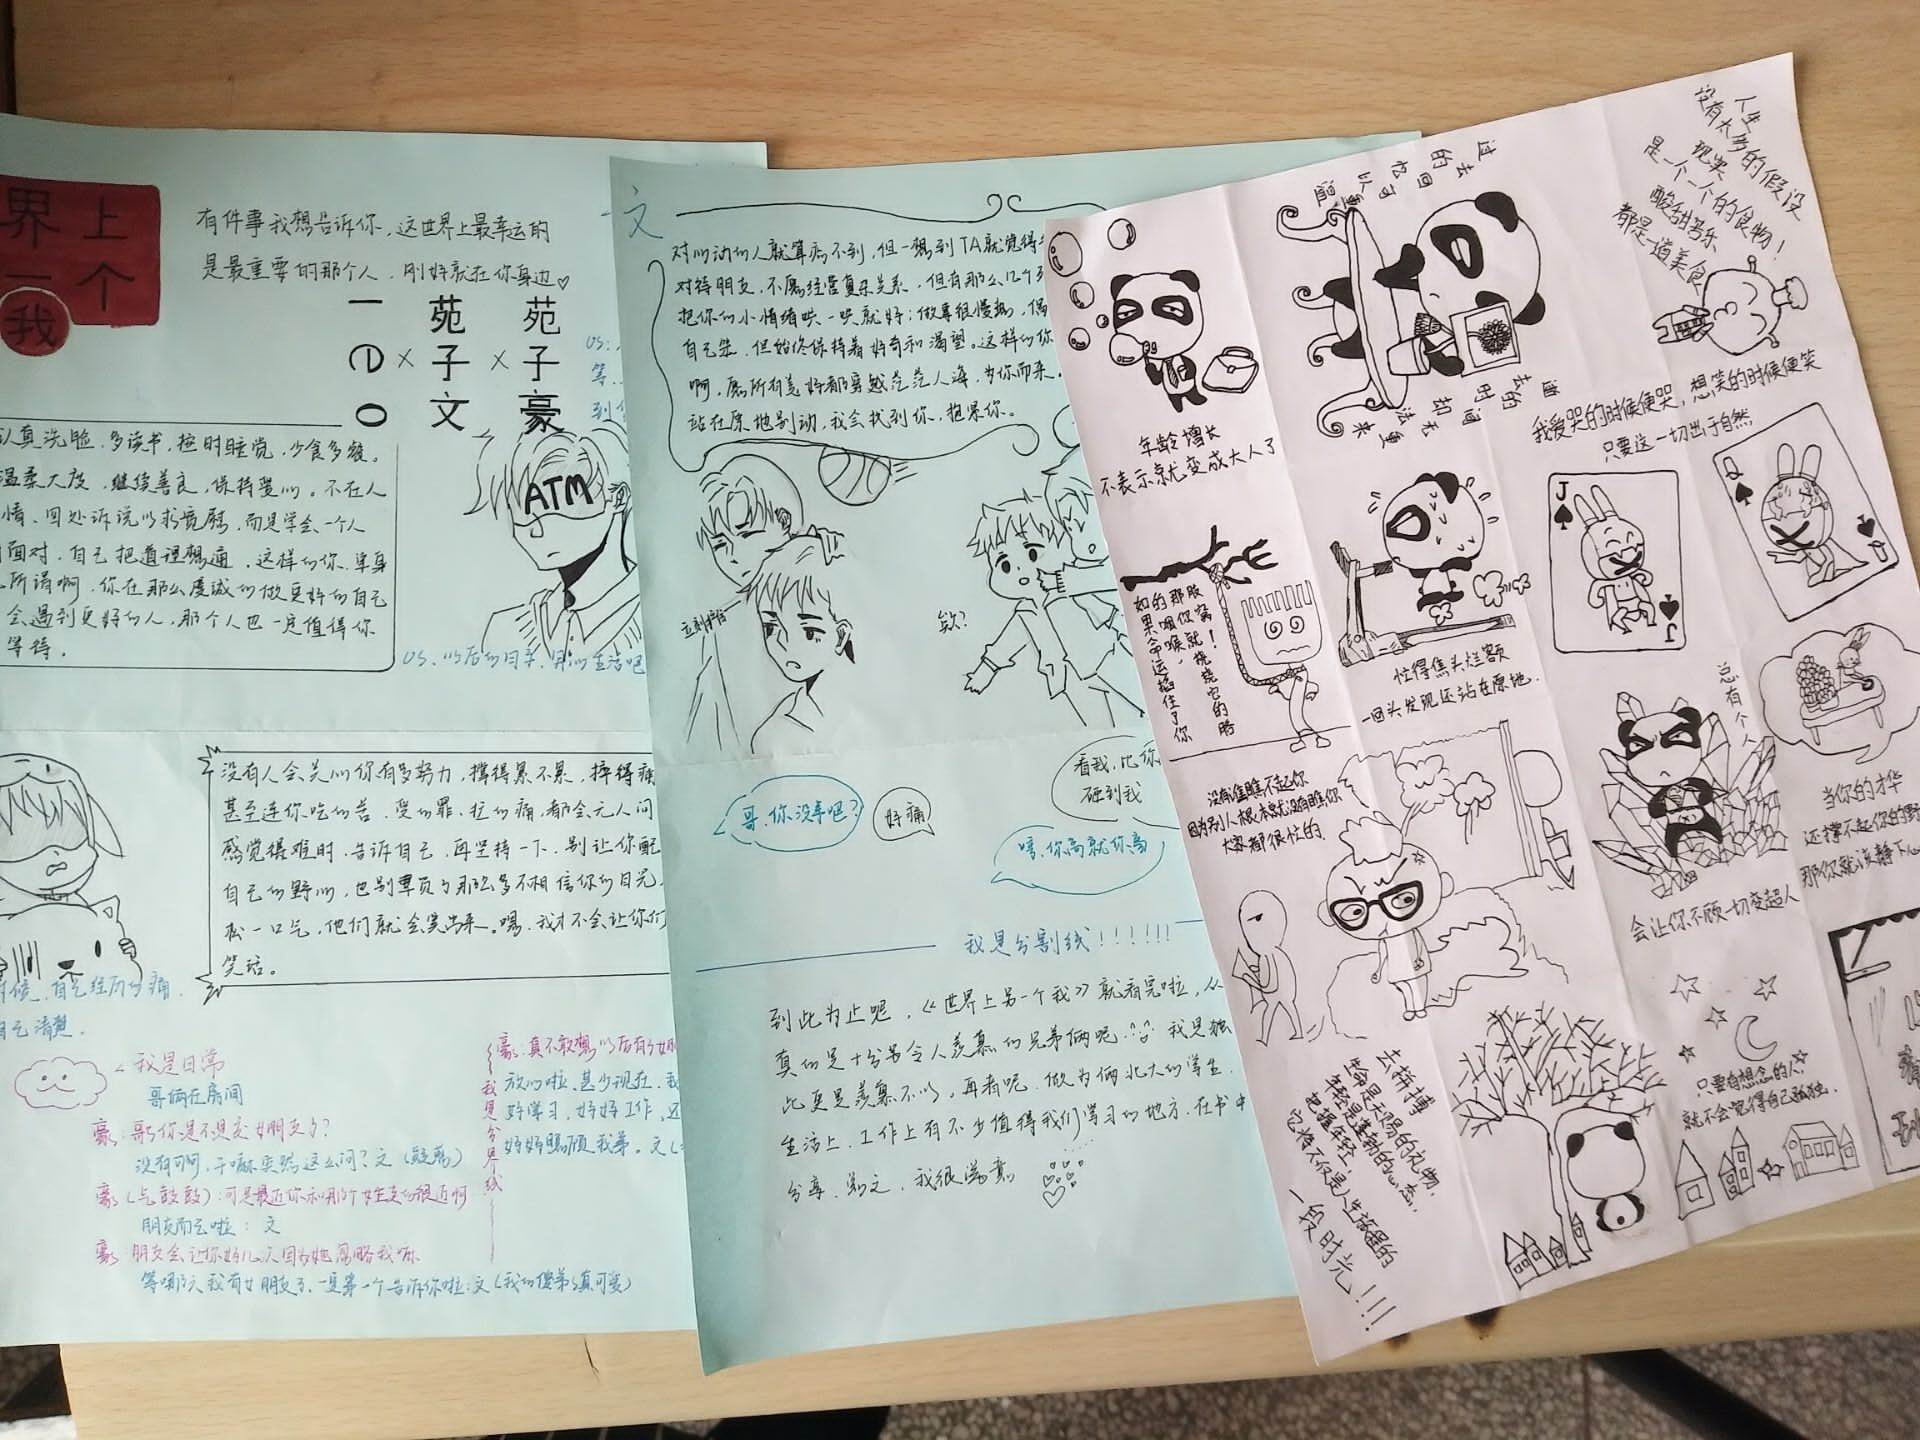 界上
一个
我
有件事我想告诉你，这世界上最幸运的
是最重要的那个人，刚好就在你身边♡
一 苑 苑
子 × 子
文 豪
认真洗脸，多读书，按时睡觉，少食多餐。
温柔大度，继续善良，保持爱心。不在人
情、四处诉说以求宽慰，而是学会一个人
面对，自己把道理想通，这样的你，单身
所谓啊，你在那么虔诚的做更好的自己
会遇到更好的人，那个人也一定值得你
等待。
ATM
没有人会关心你有多努力，撑得累不累，摔得痛
甚至连你吃的苦，受的罪，扛的痛，都会无人问
感觉很难时，告诉自己，再坚持一下，别让你配
自己的野心，也别辜负了那么多不相信你的目光
松一口气，他们就会笑出来。嘿，我才不会让你们
笑话。
自己经历的痛
自己清楚.
我是日常
哥俩在房间
豪：哥，你是不是交女朋友了？
没有啊，干嘛突然这么问？文
豪（气鼓鼓）：可是最近你和那个女生走的很近啊
朋友而已啦：文
豪：朋友会让你好几天因为她忽略我嘛
等哪天我有女朋友了，一定第一个告诉你啦：文（我的傻弟弟真可爱）
我是分界线
豪：真不敢想以后有了女朋
放心啦，甚少现在，我
好学习，好好工作，还
好好照顾我弟。文
文
对心动的人就算病不到，但一想到TA就觉得
对待朋友，不属经营复杂关系，但有那么几个
把你的小情绪哄一哄就好；做事很慢热，偶
自己笨，但始终保持着好奇和渴望。这样的你
啊，愿所有美好都穿越茫茫人海，为你而来。
站在原地别动，我会找到你，抱紧你。
欸？
哥，你没事吧？
好痛
看我，比你
砸到我
嘻，你高就你高
我是分割线！！！！！！
到此为止呢，《世界上另一个我》就看完啦，从
真的是十分另令人羡慕的兄弟俩呢 我是独
此更是羡慕不以，再者呢，做为俩北大的学生
生活上，工作上有不少值得我们学习的地方，在书中
分享，总之，我很满意
年龄增长
不表示就变成大人了
过去的回忆可以重温
逝去的时间却无法重来
人生
没有太多的假设
现实
是一个一个的食物！
酸甜苦乐
都是一道美食
我爱哭的时候便哭，想笑的时候便笑
只要这一切出于自然
如果命运掐住了你
的咽喉，
那你就挠挠它的胳
肢窝！
忙得焦头烂额
一回头发现还站在原地.
J
J
Q
Q
没有谁瞧不起你
因为别人根本就没有瞧你
大家都很忙的.
总有个人
会让你不顾一切变超人
当你的才华
还撑不起你的野
那你就该静下心
去拼搏
生命是无赐的礼物，
年轻是蓬勃的心态，
把握年轻，
它将不仅是人生旅程的
一段时光！！！
只要有想念的人，
就不会觉得自己孤独.